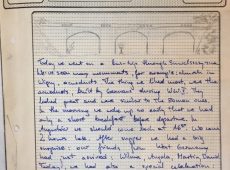 Today we went on a bus-trip through
We've seen many monuments, for example: church in
the thing we liked most are the
aqueducts, built by Germans during WW II. They
looked great and were similar to the Roman ones.
In the morning we woke up so early that we had
only a short breakfast before departure. In
we should come back at 16⁰⁰. We were
2 hours late. After supper we had a big
surprise: our friends from West Germany
had just arrived: Angela, Martin, David
had also a special celebration: